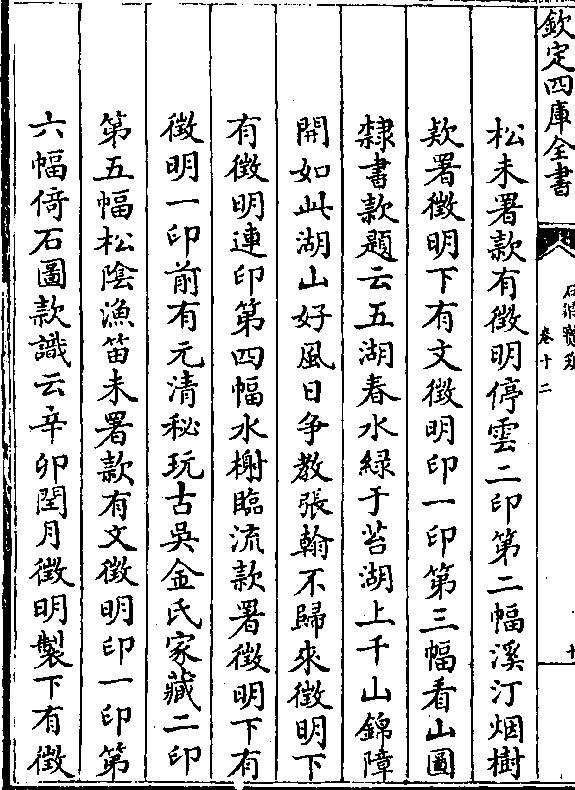 欽定四庫全書
卷十二
松未署款有徵明停雲二印第二幅溪汀烟樹
欵署徵明下有文徵明印一印第三幅看山圖
隸書款題云五湖春水緑于苔湖上千山錦障
開如此湖山好風日争教張翰不歸來徵明下
有徵明連印第四幅水榭臨流款署徵明下有
徵明一印前有元清秘玩古吳金氏家藏二印
第五幅松陰漁笛未署款有文徵明印一印第
六幅倚石圖款識云辛卯閏月徵明製下有徵